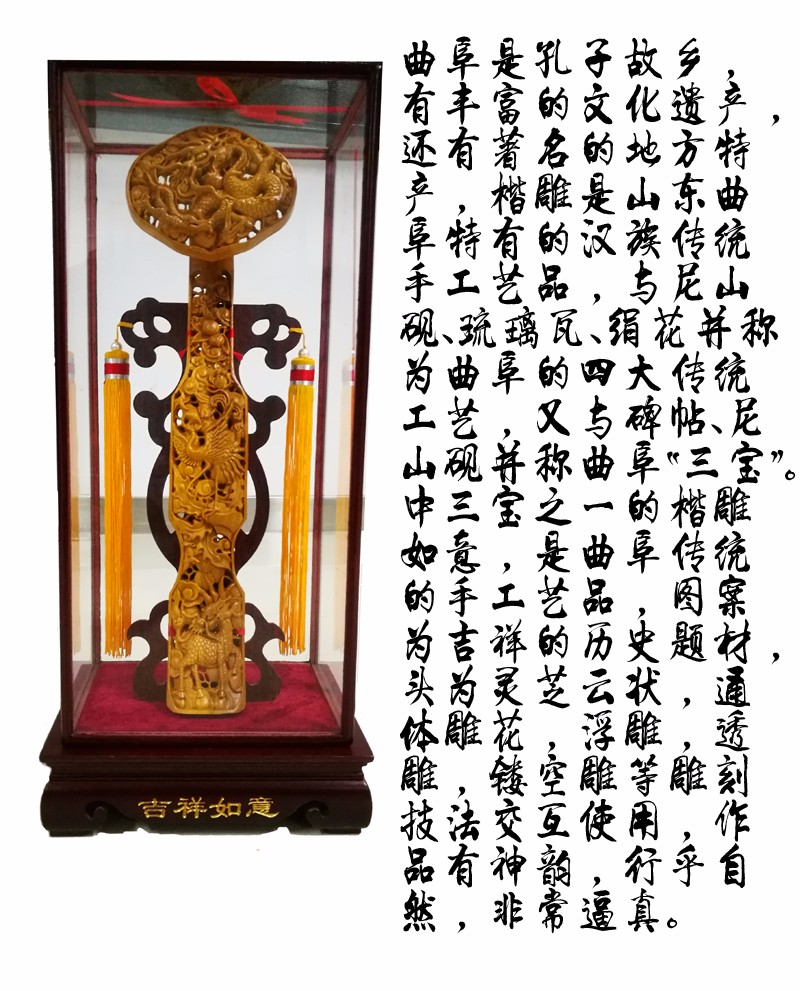 曲阜是孔子故乡，
有丰富的文化遗产，
还有著名的地方特
产，楷雕是山东曲
阜特有的汉族传统
手工艺品，与尼山
砚、琉璃瓦、绢花并称
为曲阜的四大传统
工艺，又与碑帖、尼
山砚并称曲阜“三宝”。
中三宝之一的楷雕
如意，是曲阜传统
的手工艺品，图案
为吉祥的历史题材，
头为灵芝云状，通
体雕花，浮雕，透
雕，镂空雕等雕刻
技法交互使用，作
品有神韵，行乎自
然，非常逼真。
吉祥如意